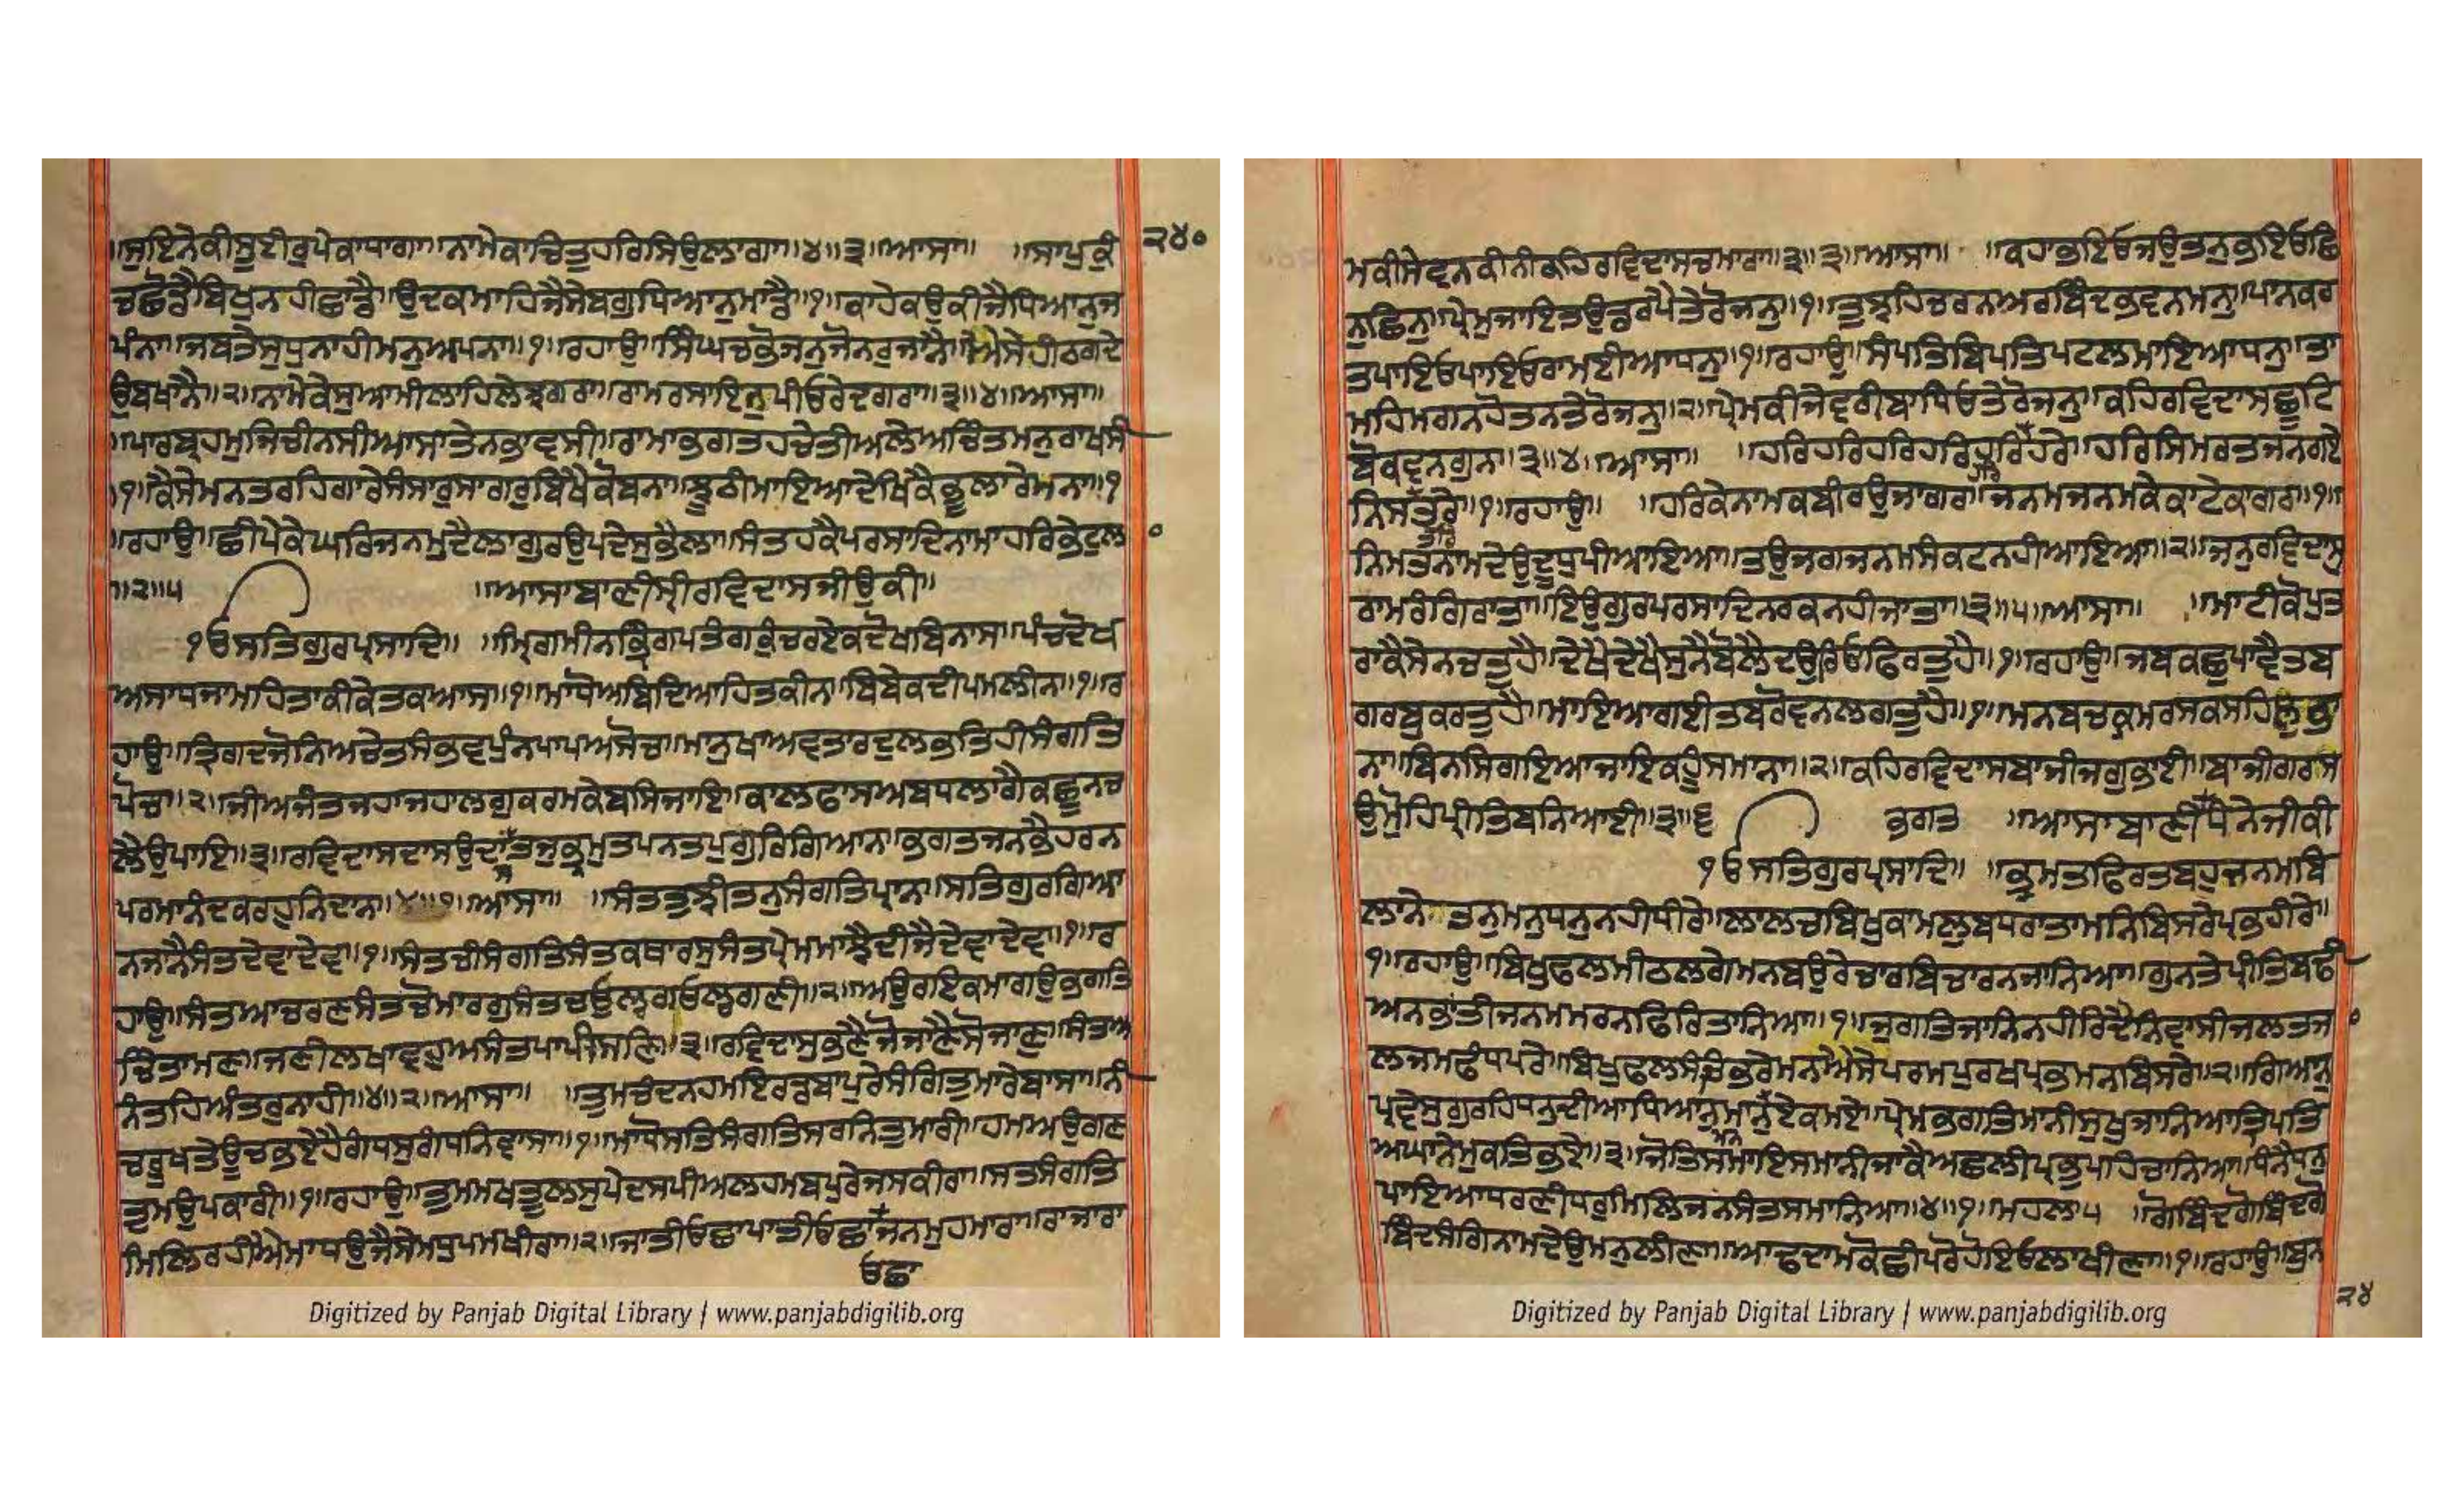 ॥ਸੁਇਨੇਕੀਸੂਈਰੁਪੇਕਾਧਾਗਾ॥ਨਾਮੇਕਾਚਿਤੁਹਰਿਸਿਉਲਾਗਾ॥੪॥੩॥ਆਸਾ॥ ॥ਸਾਪੁਕੁੰ
੨੪੦
ਚਛੋਡੈਬਿਖੁਨਹੀਛਾਡੈ॥ਉਦਕਮਾਹਿਜੈਸੇਬਗੁਧਿਆਨੁਮਾਡੈ॥੧॥ਕਾਹੇਕਉਕੀਜੈਧਿਆਨੁਜ
ਪੰਨਾ॥ਜਬਤੇਸੁਧੁਨਾਹੀਮਨੁਅਪਨਾ॥੧॥ਰਹਾਉ॥ਸਿੰਘਚਭੋਜਨੁਜੋਨਰੁਜਾਨੈ॥ਐਸੇਹੀਠਗਦੇ
ਉਬਖਾਨੈ॥੨॥ਨਾਮੇਕੇਸੁਆਮੀਲਾਹਿਲੇਝਗਰਾ॥ਰਾਮਰਸਾਇਨੁਪੀਓਰੇਦਗਰਾ॥੩॥੪॥ਆਸਾ॥
॥ਪਾਰਬ੍ਰਹਮੁਜਿਚੀਨਸੀਆਸਾਤੇਨਭਾਵਸੀ॥ਰਾਮਾਭਗਤਹਚੇਤੀਅਲੇਅਚਿੰਤਮਨੁਰਾਖਸੀ
॥੧॥ਕੈਸੇਮਨਤਰਹਿਗਾਰੇਸੰਸਾਰੁਸਾਗਰੁਬਿਖੈਕੋਬਨਾ॥ਝੂਠੀਮਾਇਆਦੇਖਿਕੈਭੂਲਾਰੇਮਨਾ॥੧
॥ਰਹਾਉ॥ਛੀਪੇਕੇਘਰਿਜਨਮੁਦੈਲਾਗੁਰਉਪਦੇਸੁਭੈਲਾ॥ਸੰਤਹਕੈਪਰਸਾਦਿਨਾਮਾਹਰਿਭੇਟੁਲਾ
॥੨॥੫ ॥ਆਸਾਬਾਣੀਸ੍ਰੀਰਵਿਦਾਸਜੀਉਕੀ॥
ੴਸਤਿਗੁਰਪ੍ਰਸਾਦਿ॥ ॥ਮ੍ਰਿਗਮੀਨਭ੍ਰਿੰਗਪਤੰਗਕੁੰਚਰਏਕਦੋਖਬਿਨਾਸ॥ਪੰਚਦੋਖ
ਅਸਾਧਜਾਮਹਿਤਾਕੀਕੇਤਕਆਸ॥੧॥ਮਾਧੋਅਬਿਦਿਆਹਿਤਕੀਨ॥ਬਿਬੇਕਦੀਪਮਲੀਨ॥੧॥ਰ
ਹਾਉ॥ਤ੍ਰਿਗਦਜੋਨਿਅਚੇਤਸੰਭਵਪੁੰਨਪਾਪਅਸੋਚ॥ਮਾਨੁਖਾਅਵਤਾਰਦੁਲਭਤਿਹੀਸੰਗਤਿ
ਪੋਚ॥੨॥ਜੀਅਜੰਤਜਹਾਜਹਾਲਗੁਕਰਮਕੇਬਸਿਜਾਇ॥ਕਾਲਫਾਸਅਬਧਲਾਗੇਕਛੂਨਚ
ਲੈਉਪਾਇ॥੩॥ਰਵਿਦਾਸਦਾਸਉਦਾਤਜੁਭ੍ਰਮੁਤਪਨਤਪੁਗੁਰਗਿਆਨ॥ਭਗਤਜਨਭੈਹਰਨ
ਪਰਮਾਨੰਦਕਰਹੁਨਿਦਾਨ॥੪॥੧॥ਆਸਾ॥ ॥ਸੰਤਤੁਝੀਤਨੁਸੰਗਤਿਪ੍ਰਾਨ॥ਸਤਿਗੁਰਗਿਆ
ਨਜਾਨੈਸੰਤਦੇਵਾਦੇਵ॥੧॥ਸੰਤਚੀਸੰਗਤਿਸੰਤਕਥਾਰਸੁਸੰਤਪ੍ਰੇਮਮਾਝੈਦੀਜੈਦੇਵਾਦੇਵ॥੧॥ਰ
ਹਾਉ॥ਸੰਤਆਚਰਣਸੰਤਚੋਮਾਰਗੁਸੰਤਚਓਲ੍ਹਗਓਲ੍ਹਗਣੀ॥੨॥ਅਉਰਇਕਮਾਗਉਭਗਤਿ
ਚਿੰਤਾਮਣਿ॥ਜਣੀਲਖਾਵਹੁਅਸੰਤਪਾਪੀਸਣਿ॥੩॥ਰਵਿਦਾਸੁਭਣੈਜੋਜਾਣੈਸੋਜਾਣੁ॥ਸੰਤਅ
ਨੰਤਹਿਅੰਤਰੁਨਾਹੀ॥੪॥੨॥ਆਸਾ॥ ॥ਤੁਮਚੰਦਨਹਮਇਰੰਡਬਾਪੁਰੇਸੰਗਿਤੁਮਾਰੇਬਾਸਾ॥ਨੀ
ਚਰੂਖਤੇਊਚਭਏਹੈਗੰਧਸੁਗੰਧਨਿਵਾਸਾ॥੧॥ਮਾਧੋਸਤਿਸੰਗਤਿਸਰਨਿਤੁਮਾਰੀ॥ਹਮਅਉਗਣ
ਤੁਮਉਪਕਾਰੀ॥੧॥ਰਹਾਉ॥ਤੁਮਮਖਤੂਲਸੁਪੇਦਸਪੀਅਲਹਮਬਪੁਰੇਜਸਕੀਰਾ॥ਸਤਸੰਗਤਿ
ਮਿਲਿਰਹੀਐਮਾਧਉਜੈਸੇਮਧੁਪਮਖੀਰਾ॥੨॥ਜਾਤੀਓਛਾਪਾਤੀਓਛਾਜਨਮੁਹਮਾਰਾ॥ਰਾਜਾਰਾ
ਓਛਾ
Digitized by Panjab Digital Library | www.panjabdigilib.org
ਮਕੀਸੇਵਨਕੀਨੀਕਹਿਰਵਿਦਾਸਚਮਾਰਾ॥੩॥੩॥ਆਸਾ॥ ॥ਕਹਾਭਇਓਜਉਤਨੁਭਇਓਛਿ
ਨੁਛਿਨੁ॥ਪ੍ਰੇਮੁਜਾਇਤਉਡਰਪੈਤੇਰੋਜਨੁ॥੧॥ਤੁਝਹਿਚਰਨਅਰਬਿੰਦਭਵਨਮਨੁ॥ਪਾਨਕਰ
ਤਪਾਇਓਪਾਇਓਰਾਮਈਆਧਨੁ॥੧॥ਰਹਾਉ॥ਸੰਪਤਿਬਿਪਤਿਪਟਲਮਾਇਆਧਨੁ॥ਤਾ
ਮਹਿਮਗਨਹੋਤਨਤੇਰੋਜਨੁ॥੨॥ਪ੍ਰੇਮਕੀਜੇਵਰੀਬਾਧਿਓਤੇਰੋਜਨੁ॥ਕਹਿਰਵਿਦਾਸਛੂਟਿ
ਬੋਕਵਨਗੁਨ॥੩॥੪॥ਆਸਾ॥ ॥ਹਰਿਹਰਿਹਰਿਹਰਿਹਰਿਹਰੇ॥ਹਰਿਸਿਮਰਤਜਨਗਏ
ਨਿਸਤਰੇ॥੧॥ਰਹਾਉ॥ ॥ਹਰਿਕੇਨਾਮਕਬੀਰਉਜਾਗਰ॥ਜਨਮਜਨਮਕੇਕਾਟੇਕਾਗਰ॥੧॥
ਨਿਮਤਨਾਮਦੇਉਦੂਧੁਪੀਆਇਆ॥ਤਉਜਗਜਨਮਸੰਕਟਨਹੀਆਇਆ॥੨॥ਜਨੁਰਵਿਦਾਸੁ
ਰਾਮਰੰਗਿਰਾਤਾ॥ਇਉਗੁਰਪਰਸਾਦਿਨਰਕਨਹੀਜਾਤਾ॥੩॥੫॥ਆਸਾ॥ ॥ਮਾਟੀਕੋਪੁਤ
ਰਾਕੈਸੇਨਚਤੁਹੈ॥ਦੇਖੈਦੇਖੈਸੁਨੈਬੋਲੈਦਉਰਿਓਫਿਰਤੁਹੈ॥੧॥ਰਹਾਉ॥ਜਬਕਛੁਪਾਵੈਤਬ
ਗਰਬੁਕਰਤੁਹੈ॥ਮਾਇਆਗਈਤਬਰੋਵਨਲਗਤੁਹੈ॥੧॥ਮਨਬਚਕ੍ਰਮਰਸਕਸਹਿਲੁਭਾ
ਨਾ॥ਬਿਨਸਿਗਇਆਜਾਇਕਹੂੰਸਮਾਨਾ॥੨॥ਕਹਿਰਵਿਦਾਸਬਾਜੀਜਗੁਭਾਈ॥ਬਾਜੀਗਰਸ
ਉਮੋੁਹਿਪ੍ਰੀਤਿਬਨਿਆਈ॥੩॥੬ ਭਗਤ ॥ਆਸਾਬਾਣੀਧੰਨੇਜੀਕੀ
ੴਸਤਿਗੁਰਪ੍ਰਸਾਦਿ॥ ॥ਭ੍ਰਮਤਫਿਰਤਬਹੁਜਨਮਬਿ
ਲਾਨੇਤਨੁਮਨੁਧਨੁਨਹੀਧੀਰੇ॥ਲਾਲਚਬਿਖੁਕਾਮਲੁਬਧਰਾਤਾਮਨਿਬਿਸਰੇਪ੍ਰਭਹੀਰੇ॥
੧॥ਰਹਾਉ॥ਬਿਖੁਫਲਮੀਠਲਗੇਮਨਬਉਰੇਚਾਰਬਿਚਾਰਨਜਾਨਿਆ॥ਗੁਨਤੇਪ੍ਰੀਤਿਬਢੀ
ਅਨਭਾਂਤੀਜਨਮਮਰਨਫਿਰਿਤਾਨਿਆ॥੧॥ਜੁਗਤਿਜਾਨਿਨਹੀਰਿਦੈਨਿਵਾਸੀਜਲਤਜਾ
ਲਜਮਫੰਧਪਰੇ॥ਬਿਖੁਫਲਸੰਚਿਭਰੇਮਨਐਸੇਪਰਮਪੁਰਖਪ੍ਰਭਮਨਬਿਸਰੇ॥੨॥ਗਿਆਨੁ
ਪ੍ਰਵੇਸੁਗੁਰਹਿਧਨੁਦੀਆਧਿਆਨੁਮਾਨੁਏਕਮਏ॥ਪ੍ਰੇਮਭਗਤਿਮਾਨੀਸੁਖੁਜਾਨਿਆਤ੍ਰਿਪਤਿ
ਅਘਾਨੇਮੁਕਤਿਭਏ॥੩॥ਜੋਤਿਸਮਾਇਸਮਾਨੀਜਾਕੈਅਛਲੀਪ੍ਰਭੁਪਹਿਚਾਨਿਆ॥ਧੰਨੈਧਨੁ
ਪਾਇਆਧਰਣੀਧਰੁਮਿਲਿਜਨਸੰਤਸਮਾਨਿਆ॥੪॥੧॥ਮਹਲਾ੫ ॥ਗੋਬਿੰਦਗੋਬਿੰਦਗੋ
ਬਿੰਦਸੰਗਿਨਾਮਦੇਉਮਨੁਲੀਣਾ॥ਆਢਦਾਮਕੋਛੀਪਰੋਹੋਇਓਲਾਖੀਣਾ॥੧॥ਰਹਾਉ॥ਬੁਨ
੨੪
Digitized by Panjab Digital Library | www.panjabdigilib.org